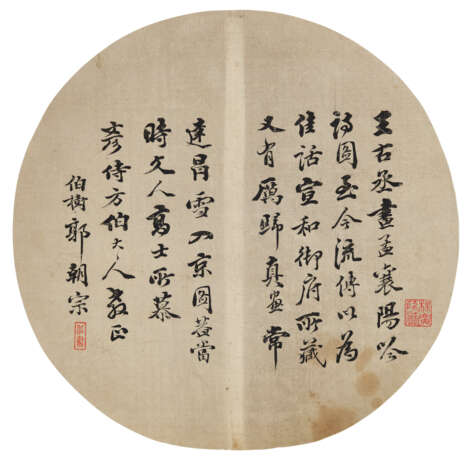 王右丞畫孟襄陽吟
詩圖至今流傳以為
佳話宣和御府所藏
又有厲歸真畫常
達冒雪入京圖皆當
時文人高士所慕
彥侍方伯大人教正
伯樹郭朝宗